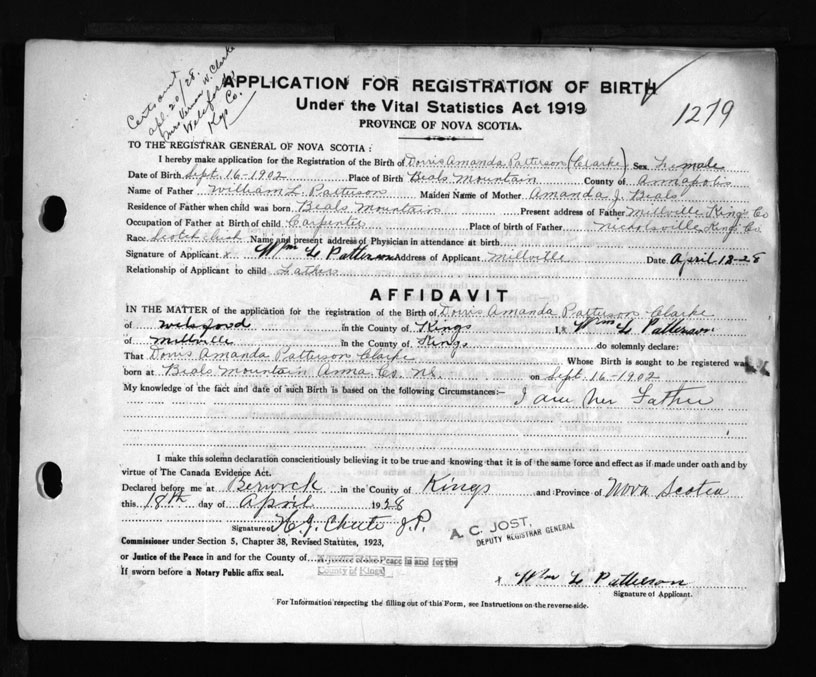 Cert sent
apl. 20/28.
Mrs Vernon W. Clarke
Welsford
Kgs Co.
APPLICATION FOR REGISTRATION OF BIRTH
Under the Vital Statistics Act 1919
1279
PROVINCE OF NOVA SCOTIA.
TO THE REGISTRAR GENERAL OF NOVA SCOTIA:
I hereby make application for the Registration of the Birth of Dorris Amanda Patterson (Clarke) Sex Female
Date of Birth Sept 16-1902 Place of Birth Beals Mountain County of Annapolis
Name of Father William L Patterson Maiden Name of Mother Amanda J. Beals
Residence of Father when child was born Beals Mountain Present address of Father Millville Kings Co
Occupation of Father at Birth of child Carpenter Place of birth of Father Nicholsville Kings Co
Race Scotch Irish Name and present address of Physician in attendance at birth
Signature of Applicant x Wm L Patterson Address of Applicant Millville Date April 18-28
Relationship of Applicant to child Father
AFFIDAVIT
IN THE MATTER of the application for the registration of the Birth of Dorris Amanda Patterson Clarke
of Welsford in the County of Kings I, Wm L Patterson
of Millville in the County of Kings do solemnly declare:
That Dorris Amanda Patterson Clarke Whose Birth is sought to be registered was
born at Beals Mountain Anna Co. N.S. on Sept. 16-1902
My knowledge of the fact and date of such Birth is based on the following Circumstances:— I am her Father
I make this solemn declaration conscientiously believing it to be true and knowing that it is of the same force and effect as if made under oath and by
virtue of The Canada Evidence Act.
Declared before me at Berwick in the County of Kings and Province of Nova Scotia
this 18th day of April 1928
Signature of H. G. Chute J.P.
A. C. JOST,
DEPUTY REGISTRAR GENERAL
Commissioner under Section 5, Chapter 38, Revised Statutes, 1923,
or Justice of the Peace in and for the County of A Justice of the Peace in and for the
County of Kings
If sworn before a Notary Public affix seal.
x Wm L Patterson
Signature of Applicant.
For Information respecting the filling out of this Form, see Instructions on the reverse side.